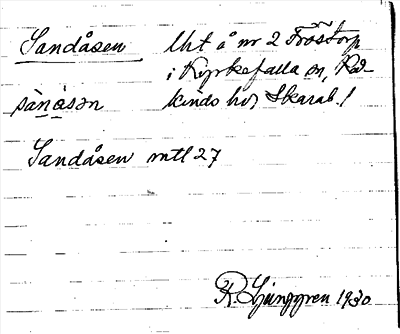 Sandåsen Uht å nr 2 Fröstorp
i Kyrkefalla sn, Kå-
sànåsən kinds hd, Skarab. l
Sandåsen mtl 27
R. Ljunggren 1930